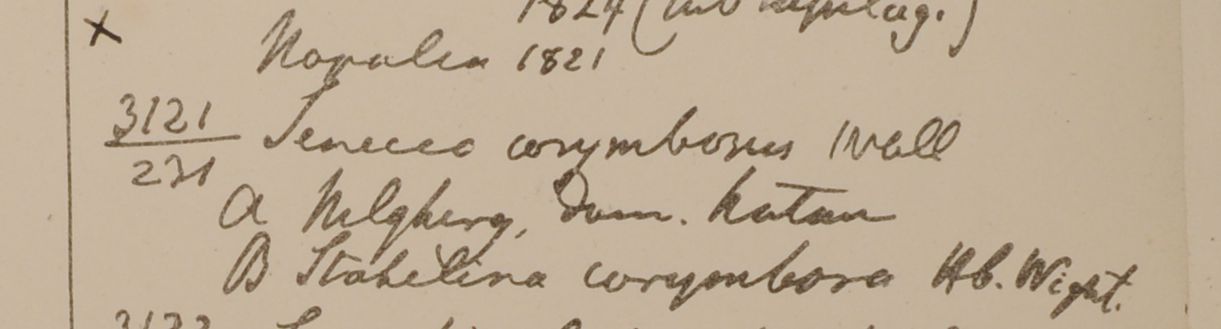 1824 (
x Napalia 1821
3121 Senecio corymbosus Wall
231
a Nilgherry, Dom. Katan
B Stahelina corymbosa Hb. Wight.